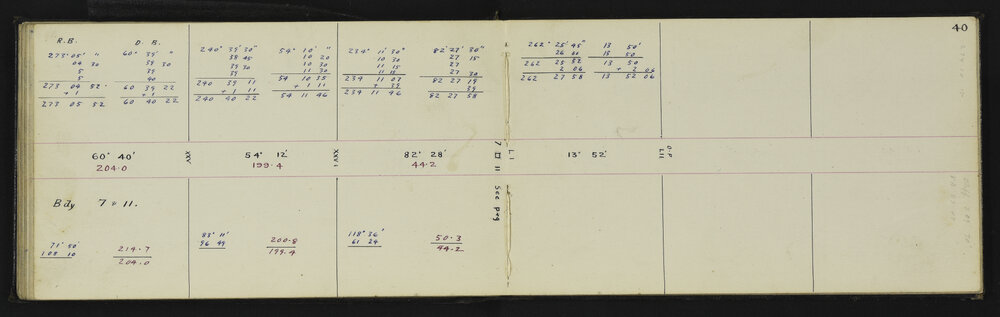 40
R.B. D.B.
273° 05' " 60° 39' "
04 30 39 30
5 39
5 40
273 04 52· 60 39 22
+ 1 + 1
273 05 52 60 40 22
240° 39' 30" 54° 10' "
38 45 10 20
39 30 10
39 11 30
240 39 11 54 10 35
+ 1 11 + 1 11
240 40 22 54 11 46
234° 11' 30" 82° 27' 30"
10 30 27 15
11 15 27
11 15 27 30
234 11 07 82 27 19
+ 39 39
234 11 46 82 27 58
262° 25' 45" 13 50'
26 13 50
262 25 52 13 50
2 06 + 2 06
262 27 58 13 52 06
60° 40'
204·0
XXV
54° 12'
199·4
XXVI
82° 28'
44·2
7 □ 11 See pag
LI
13° 52'
O.P
LII
Bdy 7 & 11.
71° 50'
108 10
214·7
204·0
83° 11'
96 49
200·8
199·4
118° 36'
61 24
50·3
44·2